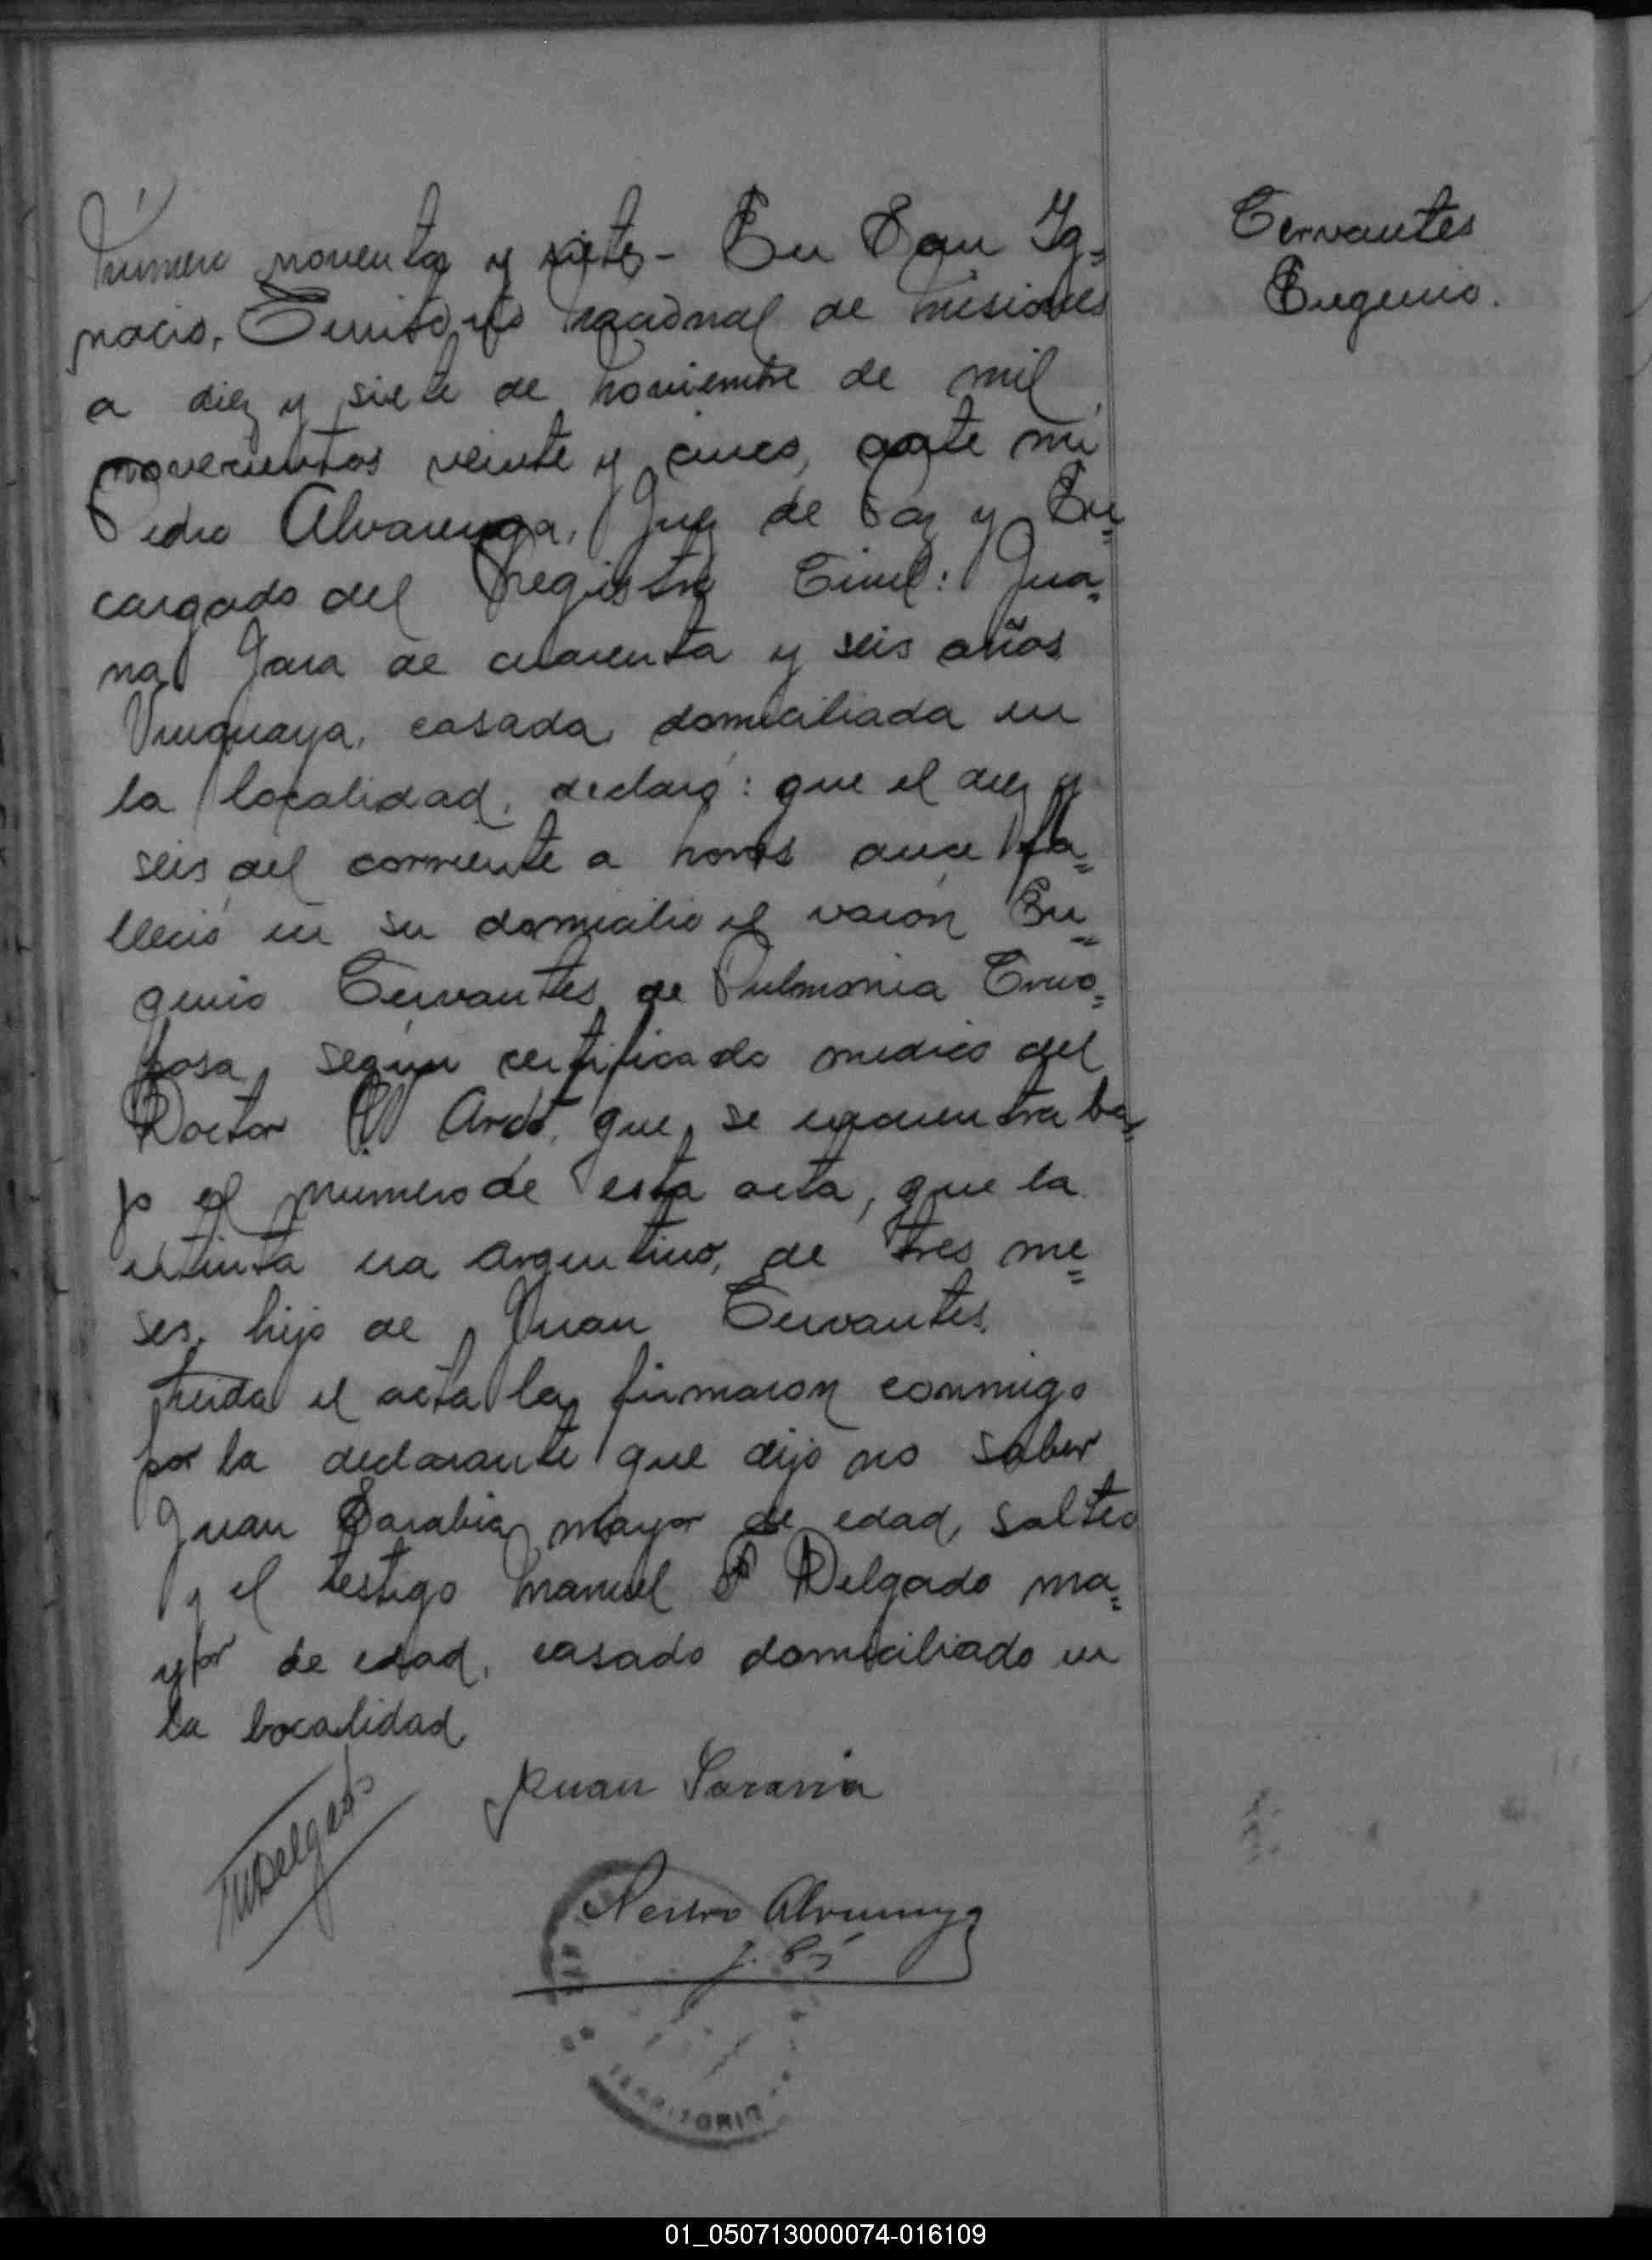 Número noventa y siete - En San Ig=
nacio, Territorio nacional de misiones
a diez y siete de noviembre de mil
novecientos veinte y cinco, ante mi
Pedro Alvarenga, Juez de Paz y En=
cargado del Registro Civil: Jua=
na Jara de cuarenta y seis años
Uruguaya, casada, domiciliada en
la localidad, declaró: que el diez y
seis del corriente a horas once fa=
lleció en su domicilio el varón Eu=
genio Cervantes, de Pulmonia Cruo=
posa, según certificado medico del
Doctor que se encuentra ba=
jo el numero de esta acta, que la
extinta era argentino, de tres me=
ses, hijo de Juan Cervantes.
Leida el acta la firmaron conmigo
por la declarante que dijo no saber
Juan Sarabia mayor de edad, solteo
y el testigo Manuel P Delgado ma=
yor de edad, casado domiciliado en
la localidad
Cervantes
Eugenio.
Juan Sararia
MDelgado
Pedro Alvarenga
J. P.
TERRITORIO
01_050713000074-016109